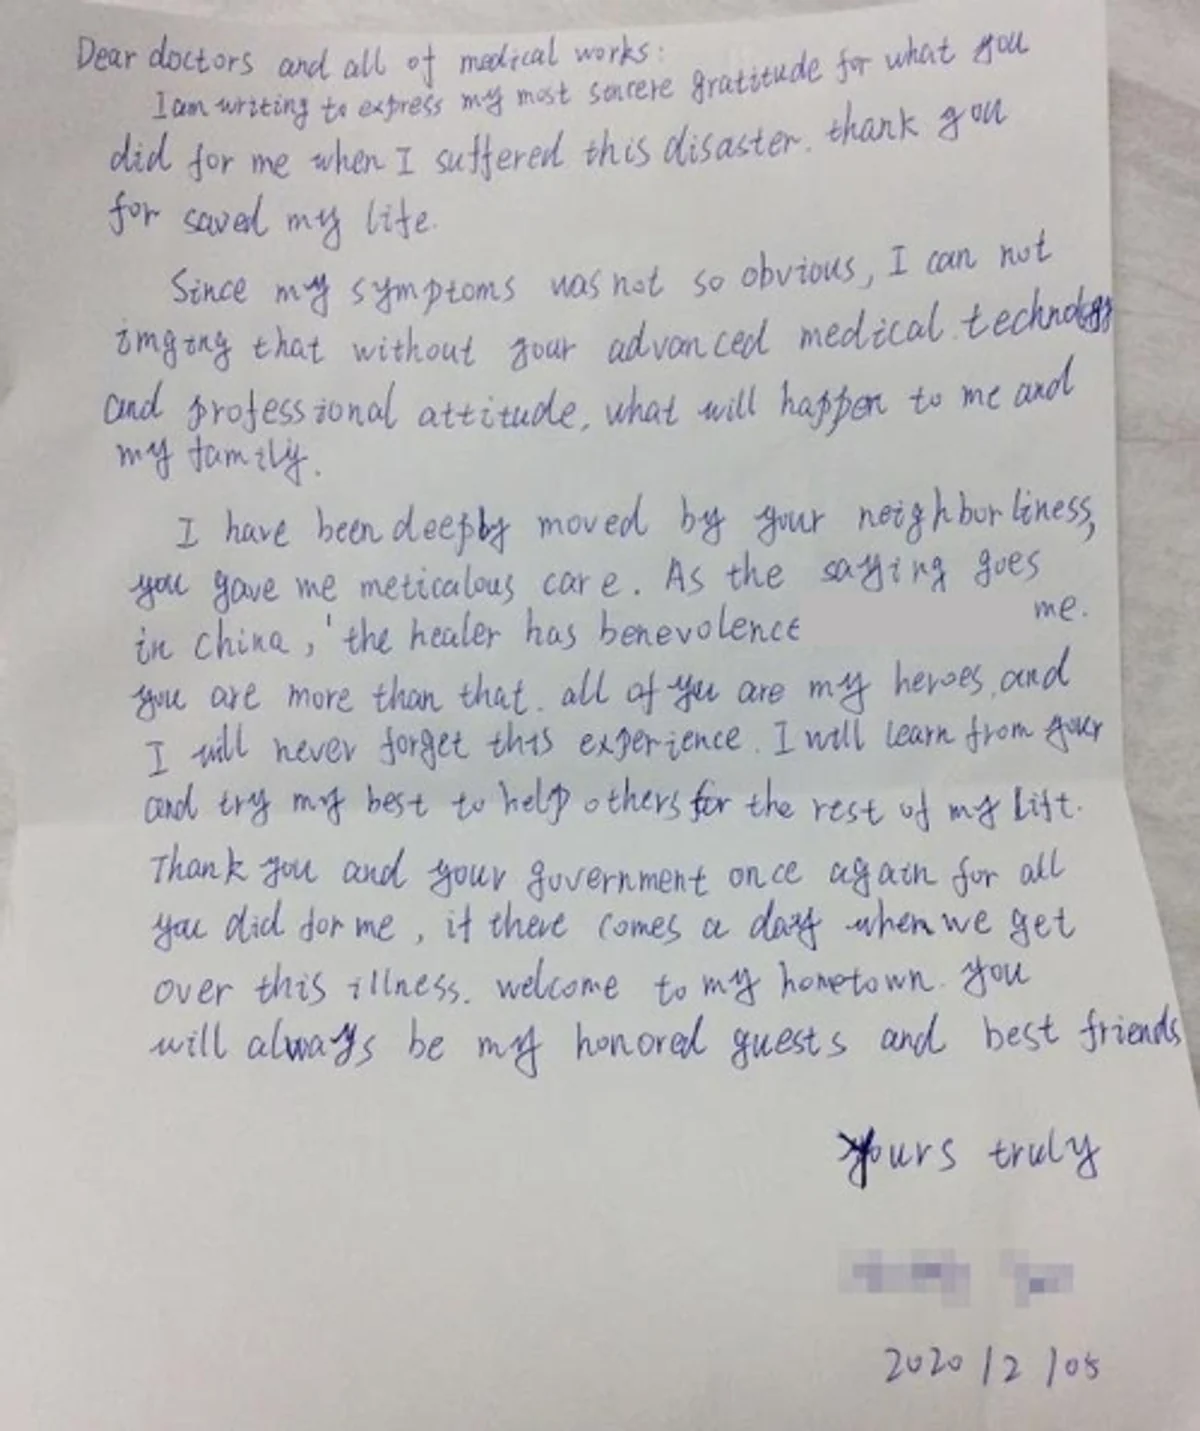 Dear doctors and all of medical works:
I am writing to express my most sincere gratitude for what you
did for me when I suffered this disaster. thank you
for saved my life.
Since my symptoms was not so obvious, I can not
imging that without your advanced medical technology
and professional attitude, what will happen to me and
my family.
I have been deeply moved by your neighborliness,
you gave me meticalous care. As the saying goes
in China, 'the healer has benevolence me.
you are more than that. all of you are my heroes, and
I will never forget this experience. I will learn from your
and try my best to help others for the rest of my life.
Thank you and your government once again for all
you did for me, if there comes a day when we get
over this illness. welcome to my hometown. you
will always be my honored guests and best friends
Yours truly
2020/2/05